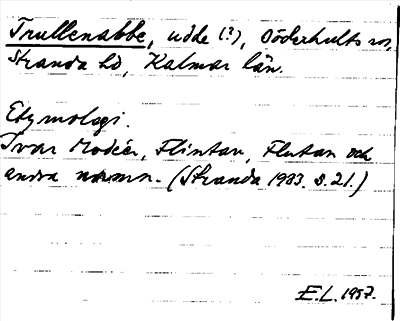 Trullenabbe, udde (?), Döderhults sn,
Stranda hd, Kalmar län.
Etymologi.
Ivar Modéer, Flintan, Flutan och
andra namn. (Stranda 1933. s. 21.)
E.L. 1957.